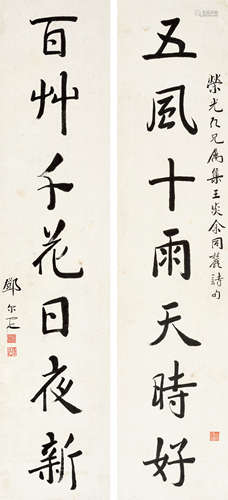 五風十雨天時好
榮光仁兄屬集王炎余同麓詩句
百艸千花日夜新
鄧尔疋